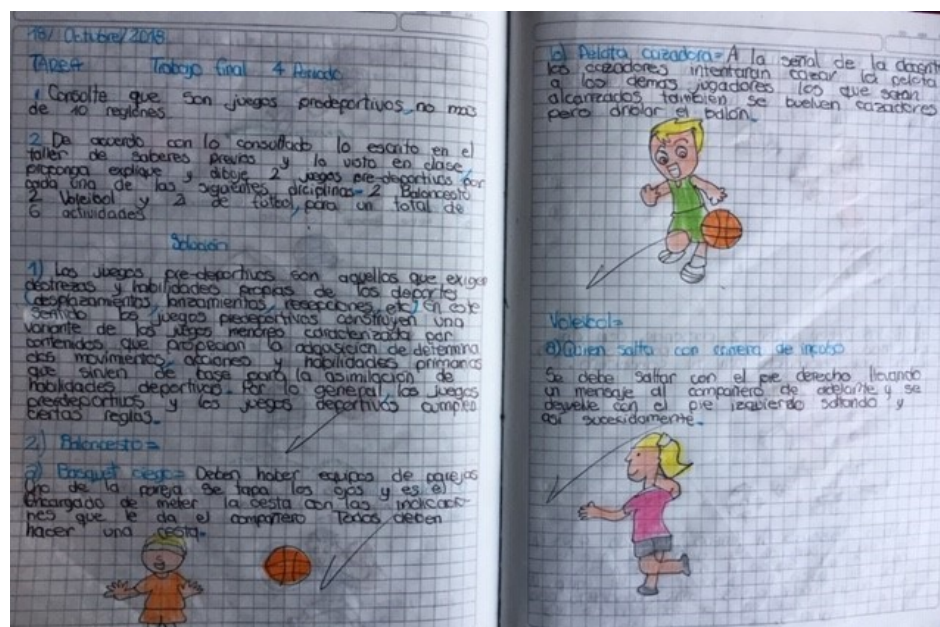 18/ Octubre/2018
TAREA Trabajo final 4 Periodo
1 Consulte que son juegos predeportivos, no mas
de 10 reglones.
2 De acuerdo con lo consultado lo escrito en el
taller de saberes previos y lo visto en clase
proponga explique y dibuje 2 juegos pre-deportivos por
cada una de las siguientes diciplinas= 2 Baloncesto
2 Voleibol y 2 de futbol, para un total de
6 actividades
Solución
1) Los juegos pre-deportivos son aquellos que exigen
destrezas y habilidades propias de los deportes
(desplazamientos, lanzamientos, resepciones, etc) En este
sentido los juegos predeportivos construyen una
variante de los juegos menores caracterizada por
contenidos que propecian la adquisición de determina
dos movimientos, acciones y habilidades primarias
que sirven de base para la asimilación de
habilidades deportivas. Por lo general los juegos
predeportivos y los juegos deportivos cumplen
ciertas reglas.
2) Baloncesto=
a) Basquet ciego= Deben haber equipos de parejas
uno de la pareja se tapa los ojos y es el
encargado de meter la cesta con las indicacio
nes que le da el compañero Todos deben
hacer una cesta.
b) Pelota cazadora= A la señal de la docente
los cazadores intentaran cazar la pelota
a los demás jugadores los que sean
alcanzados también se buelven cazadores
pero driblar el balón.
Voleibol=
a) Quien salta con carrera de
Se debe saltar con el pie derecho llevando
un mensaje al compañero de adelante y se
devuelve con el pie izquierdo saltando y
así sucesidamente.